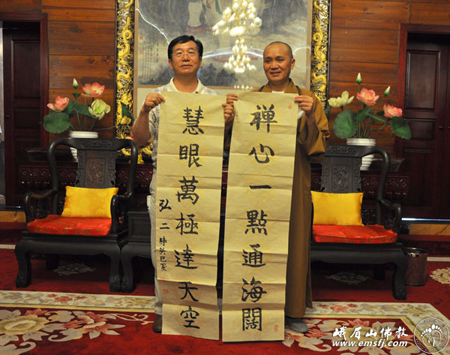 禪心一點通海闊
慧眼萬極達天空
弘二
峨眉山佛教
www.emsfj.com